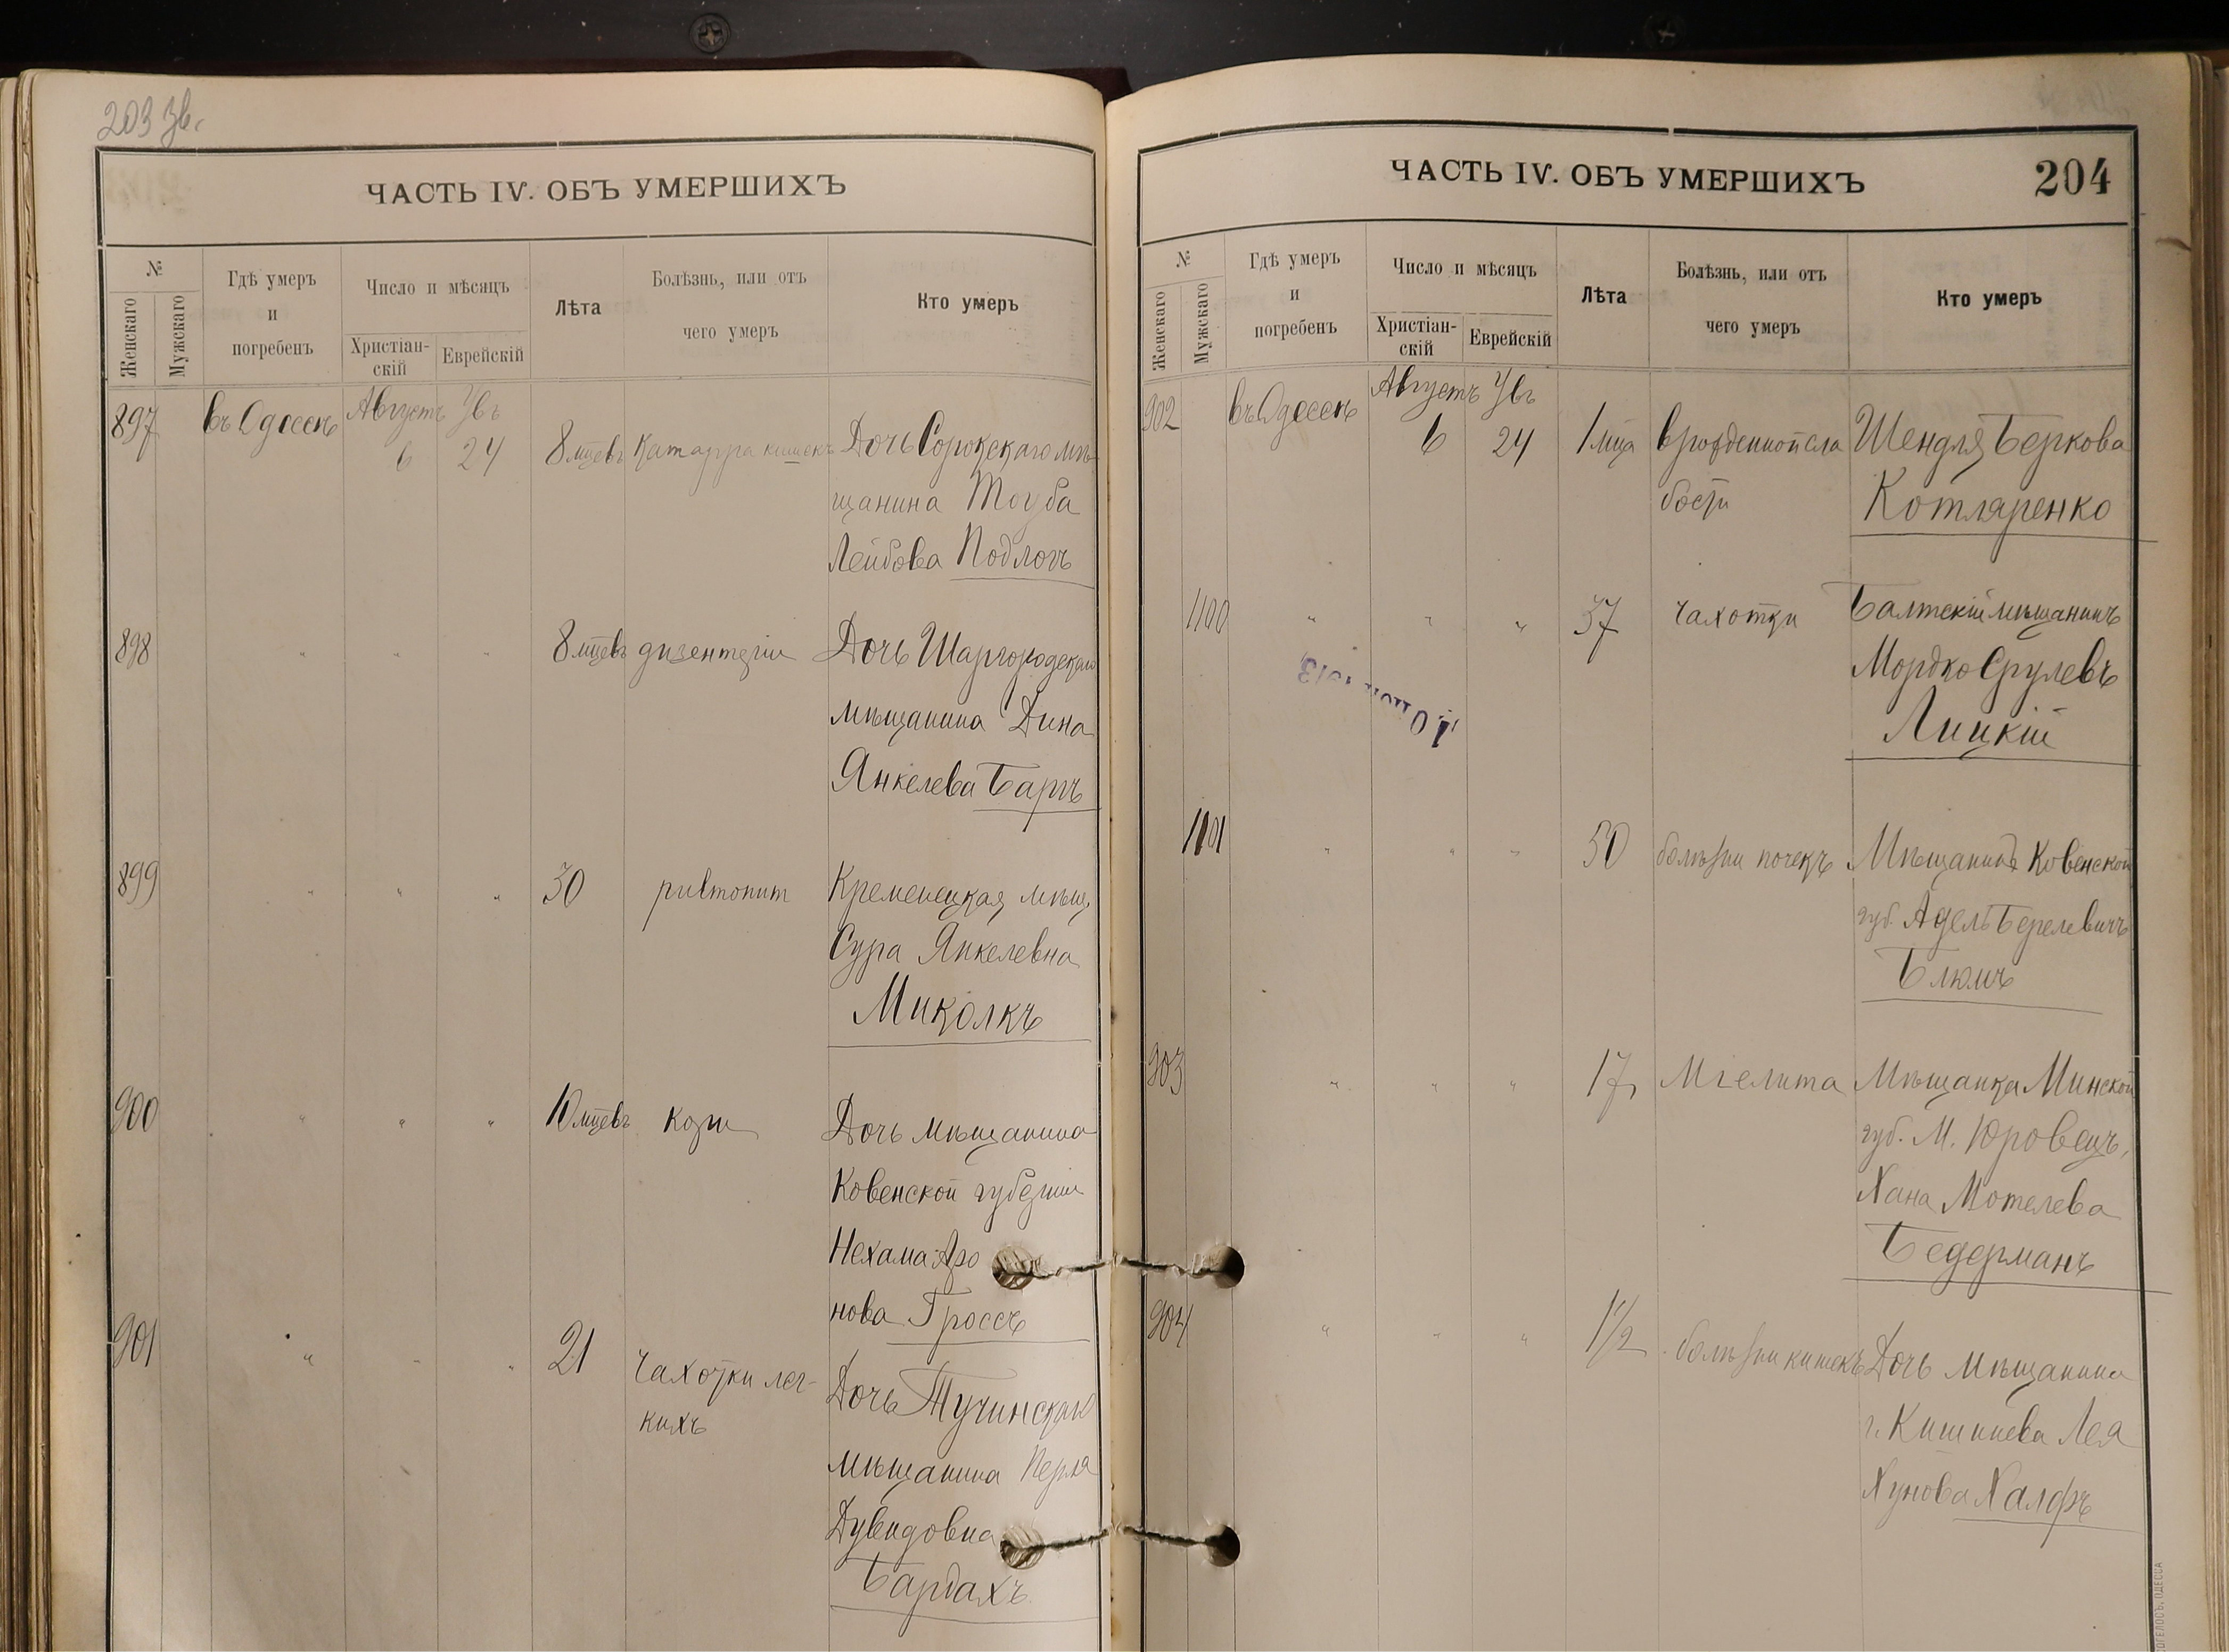 203 зв.
ЧАСТЬ IV. ОБЪ УМЕРШИХЪ
№
Женскаго
Мужскаго
Гдѣ умеръ
и
погребенъ
Число и мѣсяцъ
Христіан-
скій
Еврейскій
Лѣта
Болѣзнь, или отъ
чего умеръ
Кто умеръ
897
въ Одессѣ
Августъ
6
24
8 мцевъ
Катарра кишекъ
Дочь Сорокскаго мѣ-
щанина Тоуба
Лейбова Подлогъ
898
" " "
8 мцевъ
дизентеріи
Дочь Шаргородскаго
мѣщанина Дина
Янкелева Баръ
899
" " "
30
Кременецкая мѣщ.
Сура Янкелевна
Миколкъ
900
" " "
10 мцевъ
кори
Дочь мѣщанина
Ковенской губерніи
Нехама Аро
нова Гроссъ
901
" " "
21
Чахотки лег-
кихъ
Дочь Тучинскаго
мѣщанина Перля
Дувидовна
Бардахъ
ЧАСТЬ IV. ОБЪ УМЕРШИХЪ
204
№
Женскаго
Мужскаго
Гдѣ умеръ
и
погребенъ
Число и мѣсяцъ
Христіан-
скій
Еврейскій
Лѣта
Болѣзнь, или отъ
чего умеръ
Кто умеръ
902
въ Одессѣ
Августъ
6
24
1 мца
врожденной сла
бости
Шендля Беркова
Котляренко
1100
" " "
37
чахотки
Балтскій мѣщанинъ
Мордко Срулевъ
Лицкій
1913
1101
" " "
50
болѣзни почекъ
Мѣщанинъ Ковенской
губ. Адель Берелевичъ
Блюмъ
903
" " "
17
Міелита
Мѣщанка Минской
губ. М. Юровецъ,
Хана Мотелева
Бедерманъ
904
" " "
1 1/2
болѣзни кишекъ
Дочь мѣщанина
г. Кишинева Лея
Хунова Халфъ
ОДЕССА